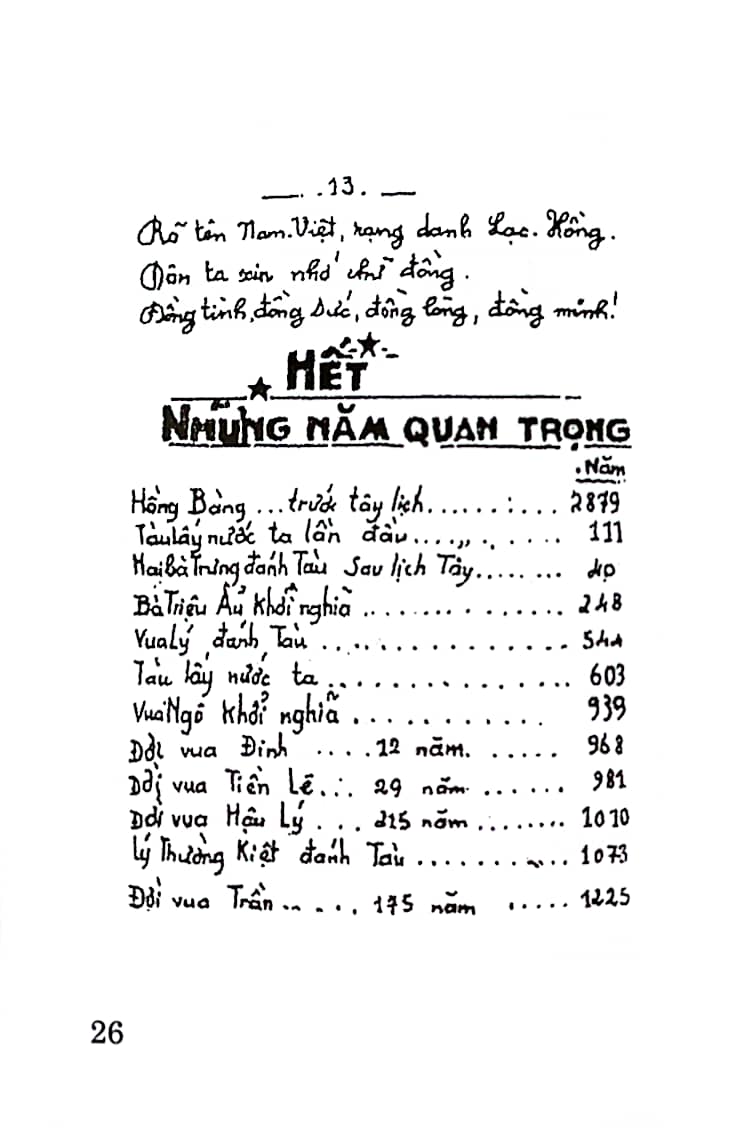 — . 13 . —
Rõ tên Nam.Việt, rạng danh Lạc.Hồng.
Dân ta xin nhớ chữ đồng.
Đồng tình, đồng sức, đồng lòng, đồng minh!
HẾT
NHỮNG NĂM QUAN TRỌNG
.Năm
Hồng Bàng ... trước tây lịch ....... : .... 2879
Tàu lấy nước ta lần đầu ....,, . ..... 111
Hai bà Trưng đánh Tàu Sau lịch Tây ........ 40
Bà Triệu Ẩu khởi nghĩa ................ 248
Vua Lý đánh Tàu ................. 544
Tàu lấy nước ta ................ 603
Vua Ngô khởi nghĩa ............ 939
Đời vua Đinh .... 12 năm. ...... 968
Đời vua Tiền Lê ... 29 năm ...... 981
Đời vua Hậu Lý ... 215 năm ........ 1010
Lý Thường Kiệt đánh Tàu ............ 1073
Đời vua Trần ...... 175 năm ..... 1225
26